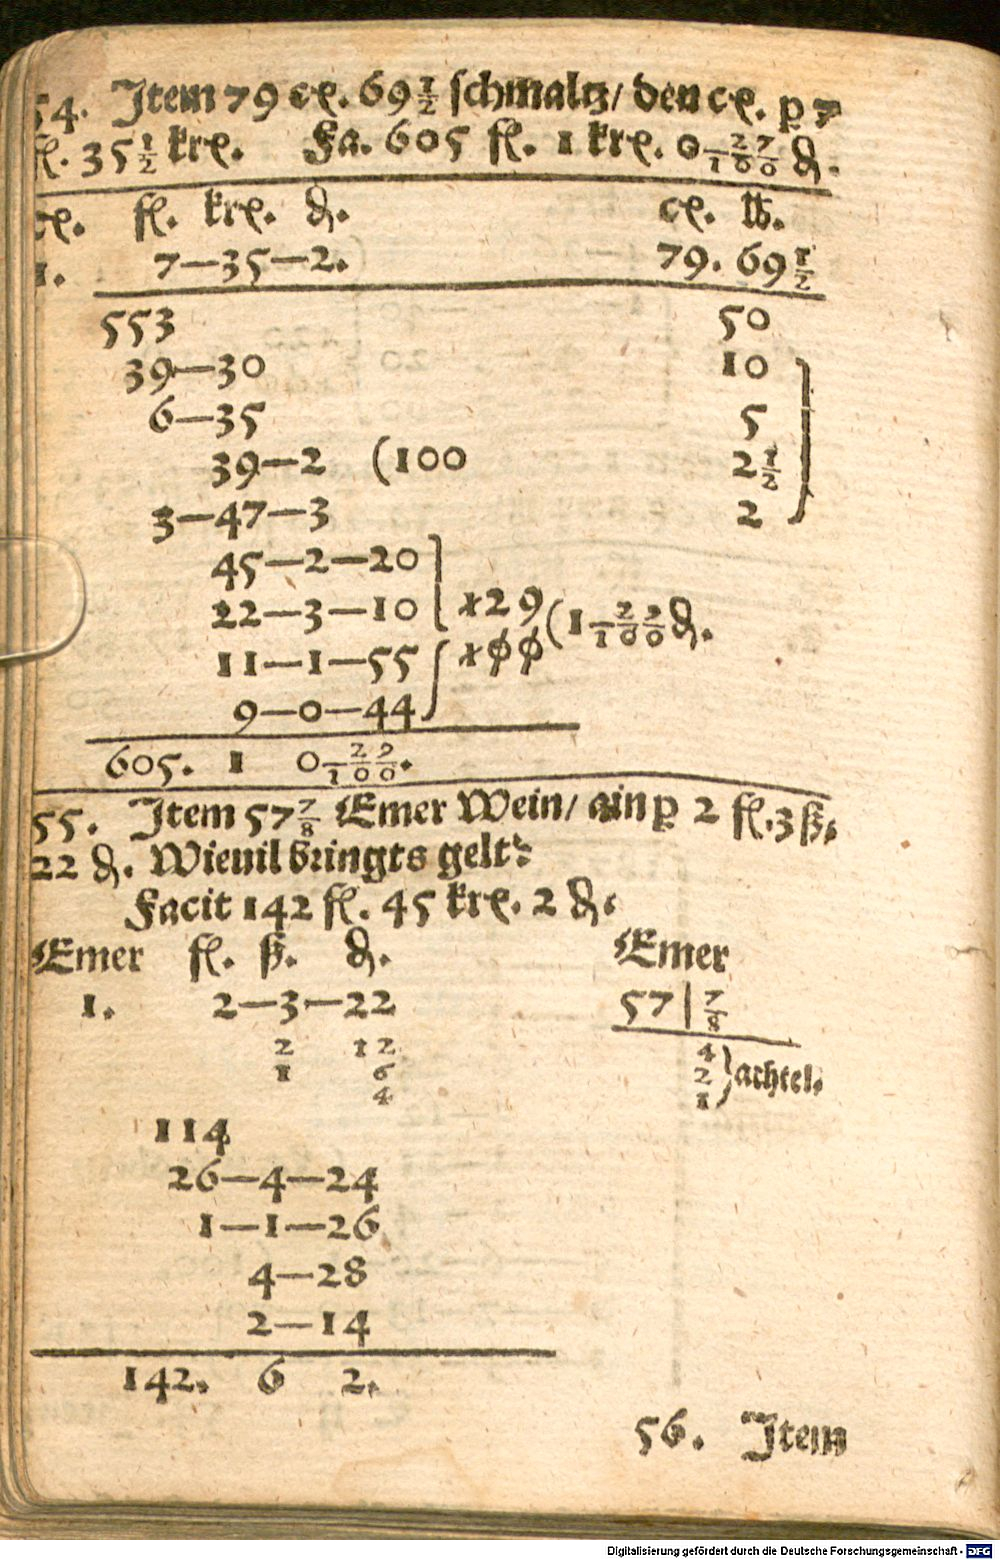 54. Item 79 cꝫ. 69 1/2 schmaltz/ den cꝫ. ꝑ 7
fl. 35 1/2 krꝫ. Fa. 605 fl. 1 krꝫ. 0 27/100 ₰.
cꝫ. fl. krꝫ. ₰. cꝫ. ℔.
1. 7—35—2. 79. 69 1/2
553 50
39—30 10
6—35 5
39—2 (100 2 1/2
3—47—3 2
45—2—20
22—3—10 129 (1 29/100 ₰.
11—1—55 100
9—0—44
605. 1 0 29/100.
55. Item 57 7/8 Emer Wein/ ain ꝑ 2 fl. 3 ß.
22 ₰. Wieuil bringts gelt?
Facit 142 fl. 45 krꝫ. 2 ₰.
Emer fl. ß. ₰. Emer
1. 2—3—22 57 | 7/8
2 12 4
1 6 2 achtel.
4 1
114
26—4—24
1—1—26
4—28
2—14
142. 6 2.
56. Item
Digitalisierung gefördert durch die Deutsche Forschungsgemeinschaft - DFG